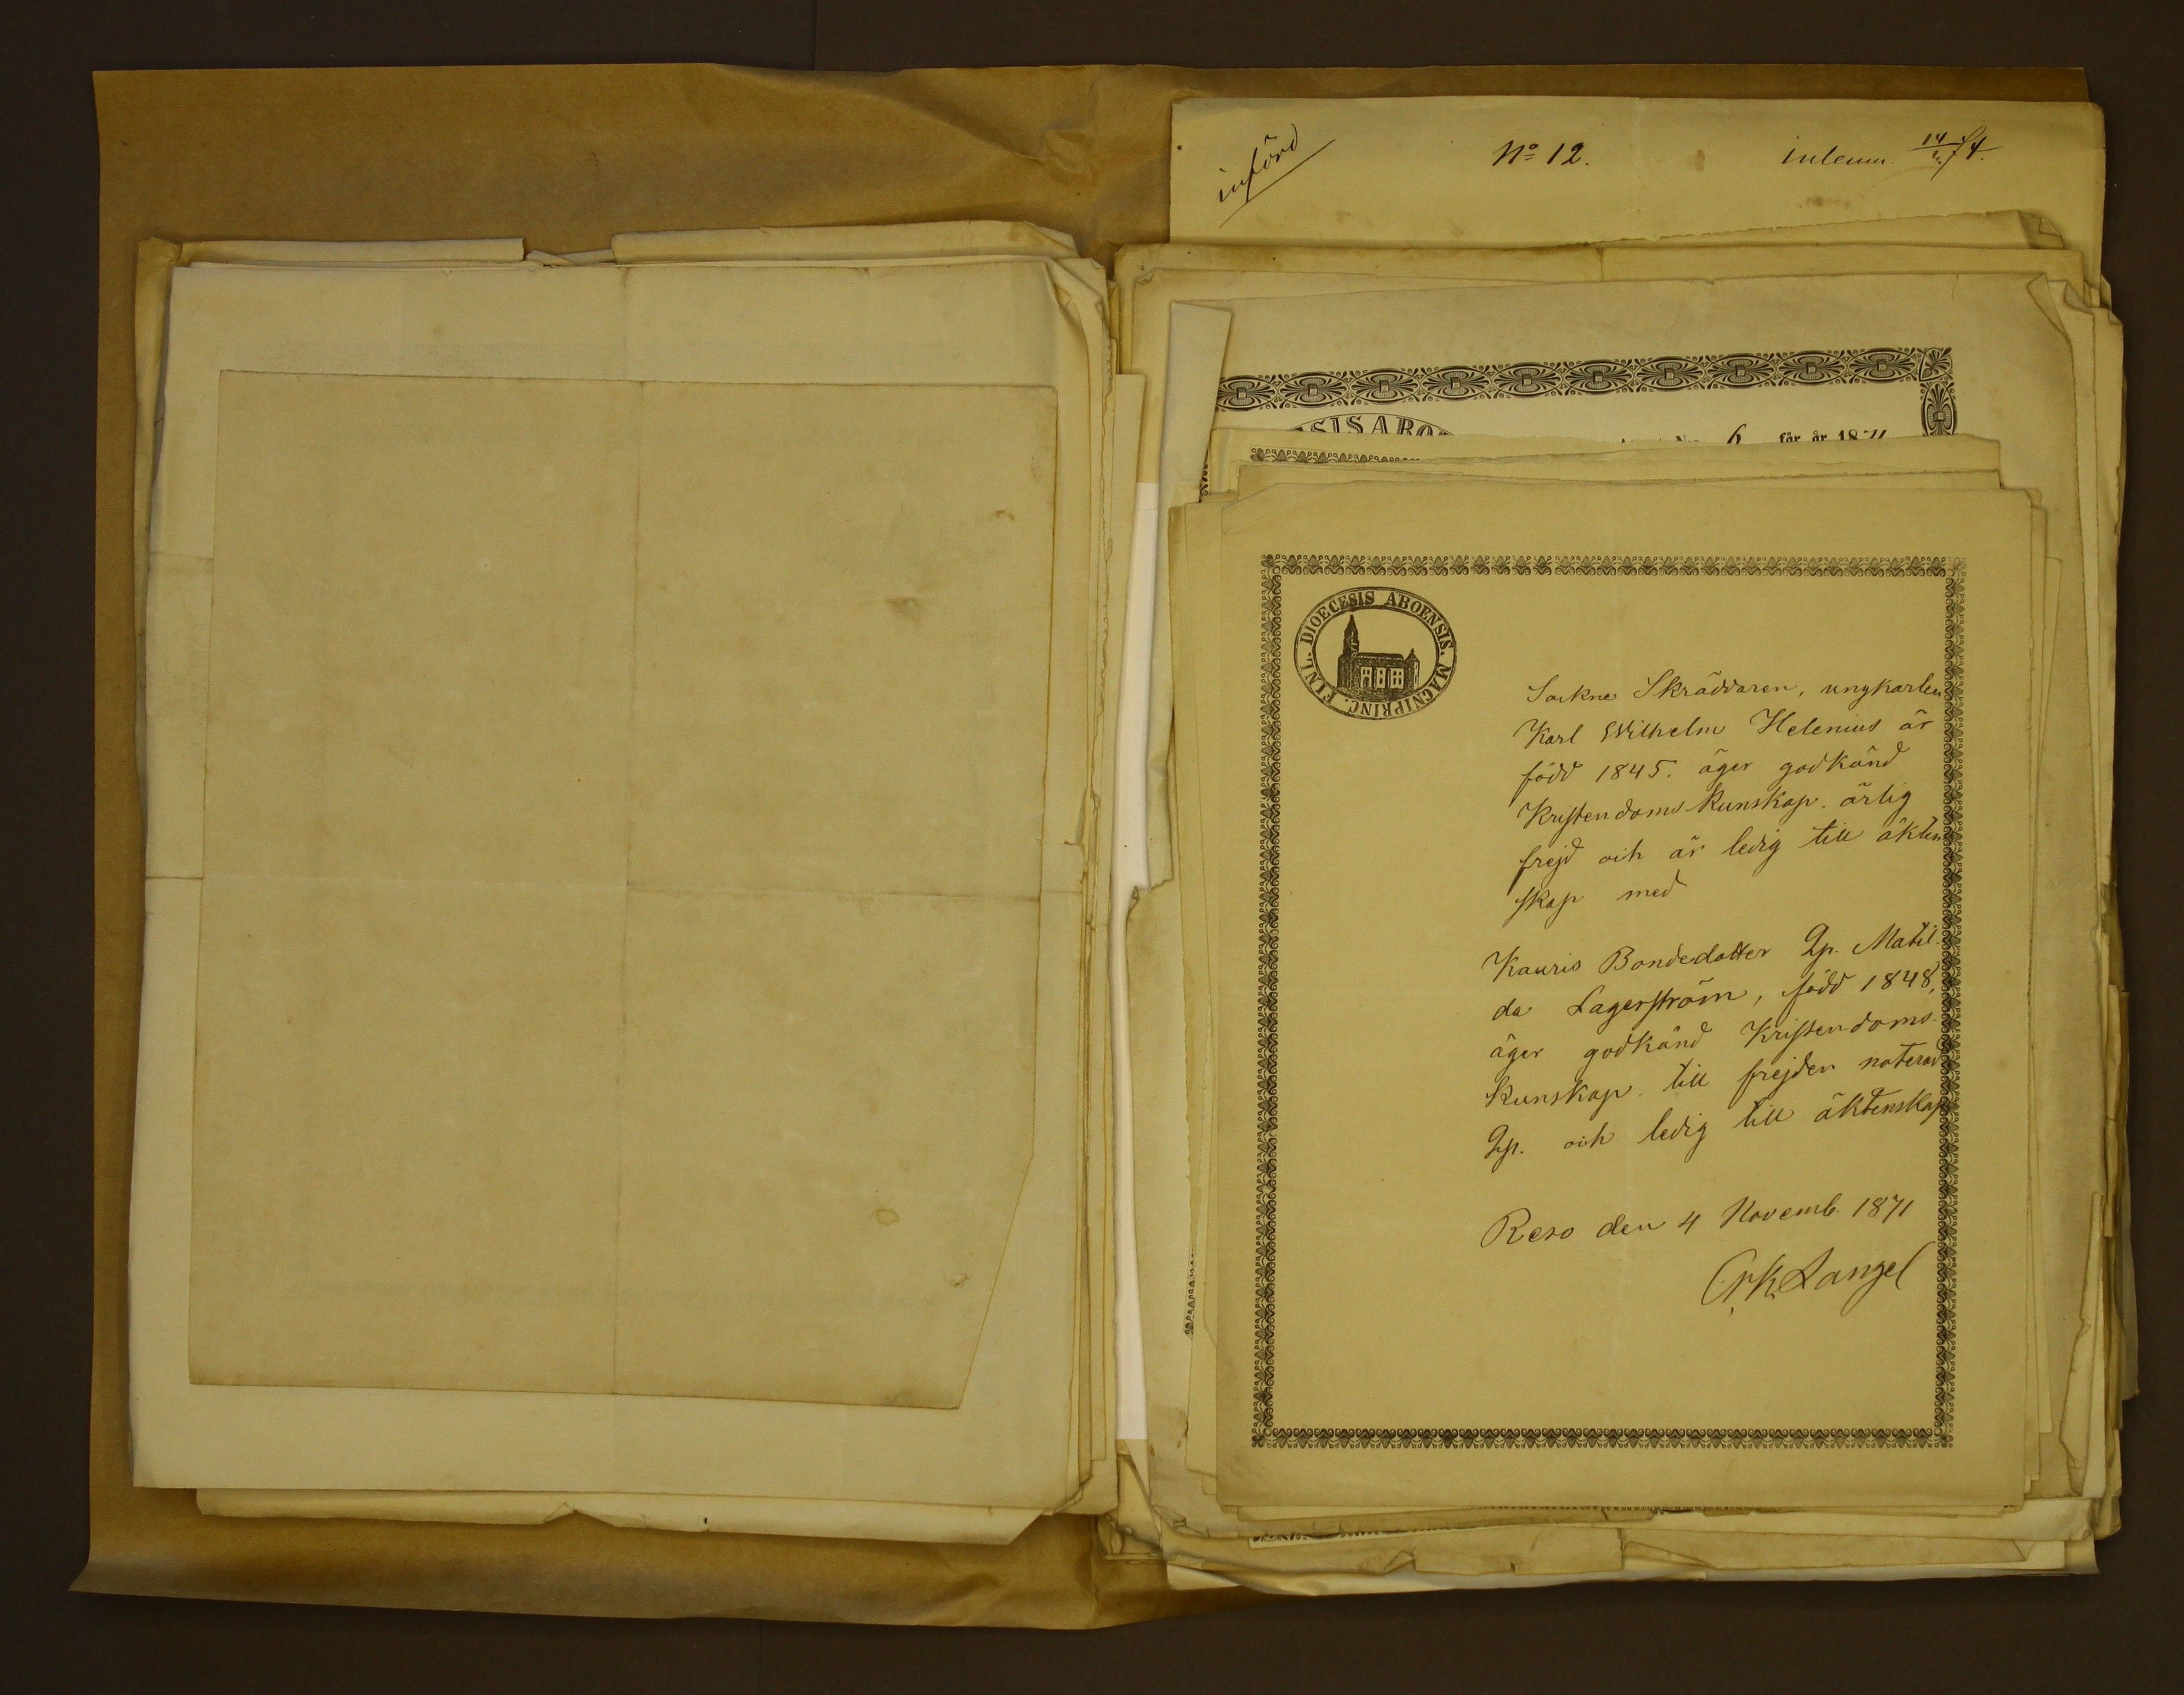 införd
No 12.
inlemn.
No 6 för år 1871
DIOECESIS ABOENSIS. MAGNI PRINC. FINL.
Sockne Skräddaren, ungkarlen
Karl Wilhelm Helenius är
född 1845. äger godkänd
Kristendoms Kunskap. ärlig
frejd och är ledig till äkten
skap med
Kauris Bondedotter Qp. Matil-
da Lagerström, född 1848,
äger godkänd Kristendoms-
kunskap. till frejden noterad
Qp. och ledig till äktenskap
Reso den 4 Novemb. 1871
Langel